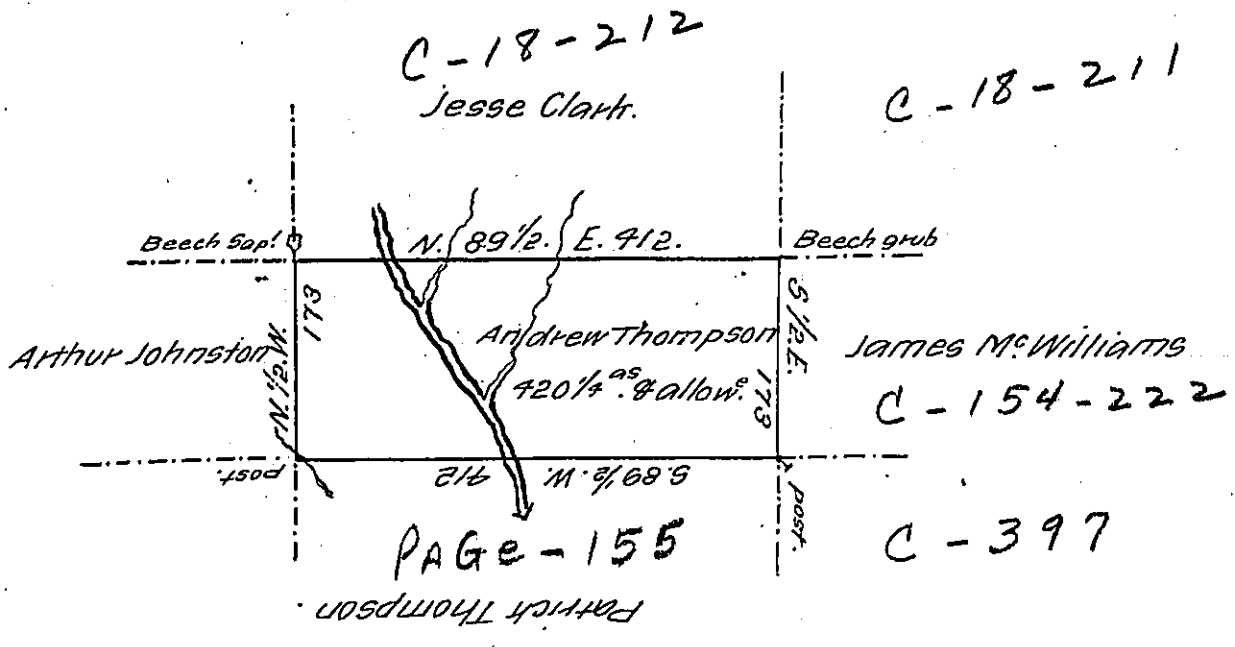 C-18-212
C-18-211
Jesse Clark.
Beech Sapl
N. 89 1/2. E. 412.
Beech grub
N. 1/2 W.
173
S 1/2. E.
173
Arthur Johnston
Andrew Thompson
420 1/4 as. & allowe.
James McWilliams
C-154-222
post.
S. 89 1/2. W. 412
post.
PAGe-155
C-397
Patrick Thompson.